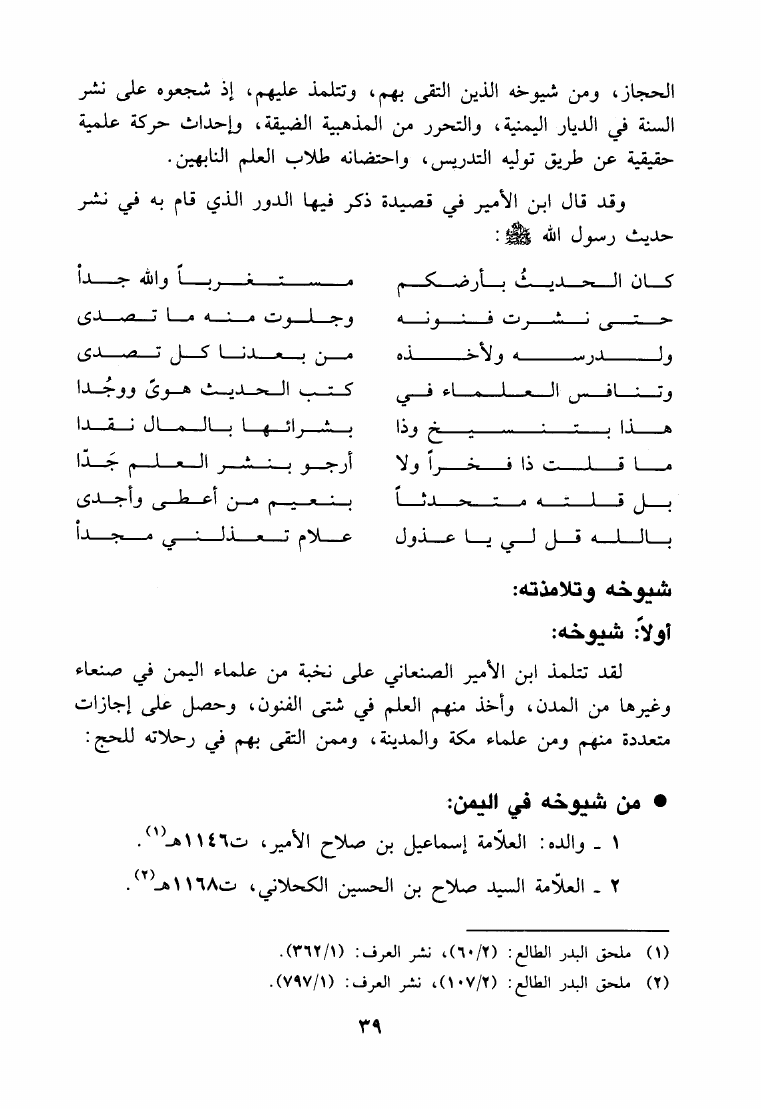 الحجاز، ومن شيوخه الذين التقى بهم، وتتلمذ عليهم، إذ شجعوه على نشر
السنة في الديار اليمنية، والتحرر من المذهبية الضيقة، وإحداث حركة علمية
حقيقية عن طريق توليه التدريس، واحتضانه طلاب العلم النابهين.
وقد قال ابن الأمير في قصيدة ذكر فيها الدور الذي قام به في نشر
حديث رسول الله ﷺ:
كان الحديثُ بأرضكم مستغرباً والله جداً
حتى نشرت فنونه وجلوت منه ما تصدى
ولدرسه ولأخذه من بعدنا كل تصدى
وتنافس العلماء في كتب الحديث هوىً ووجُدا
هذا بتنسيخ وذا بشرائها بالمال نقدا
ما قلت ذا فخراً ولا أرجو بنشر العلم جَدّا
بل قلته متحدثاً بنعيم من أعطى وأجدى
بالله قل لي يا عذول علام تعذلني مجداً
شيوخه وتلامذته:
أولاً: شيوخه:
لقد تتلمذ ابن الأمير الصنعاني على نخبة من علماء اليمن في صنعاء
وغيرها من المدن، وأخذ منهم العلم في شتى الفنون، وحصل على إجازات
متعددة منهم ومن علماء مكة والمدينة، وممن التقى بهم في رحلاته للحج:
● من شيوخه في اليمن:
١ - والده: العلاّمة إسماعيل بن صلاح الأمير، ت١١٤٦هـ(١).
٢ - العلاّمة السيد صلاح بن الحسين الكحلاني، ت١١٦٨هـ(٢).
(١) ملحق البدر الطالع: (٦٠/٢)، نشر العرف: (٣٦٢/١).
(٢) ملحق البدر الطالع: (١٠٧/٢)، نشر العرف: (٧٩٧/١).
٣٩